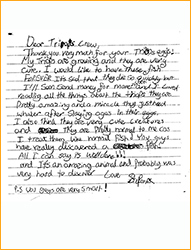 Dear Triops Crew,
Thank you very much for your Triops eggs!
My Triops are growing and they are very
cute. I would like to have these for
FOREVER It's sad that they die so quickly but
I'll save and money for more! and I loved
reading all the things about the triops they are
Pretty amazing and a miracle they just need
water after staying ages in their eggs.
I also think they are very cute creatures
and they are Pretty normal to me cos
I treat them like normal fish! You guys
have really discovered a fish!
All I can say is
and It's an amazing animal and probably was
very hard to discover. Love
P.S are very smart!